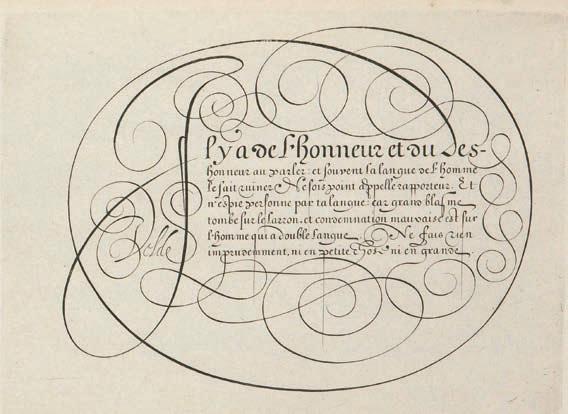 Il y a de l'honneur et du des-
honneur au parler: et souvent la langue de l'homme
le fait ruiner. Ne sois point appellé rapporteur. Et
n'espie personne par ta langue: car grand blasme
tombe sur le larron, et condemnation mauvaise est sur
l'homme qui a double langue. Ne fais rien
imprudemment, ni en petite chose ni en grande.